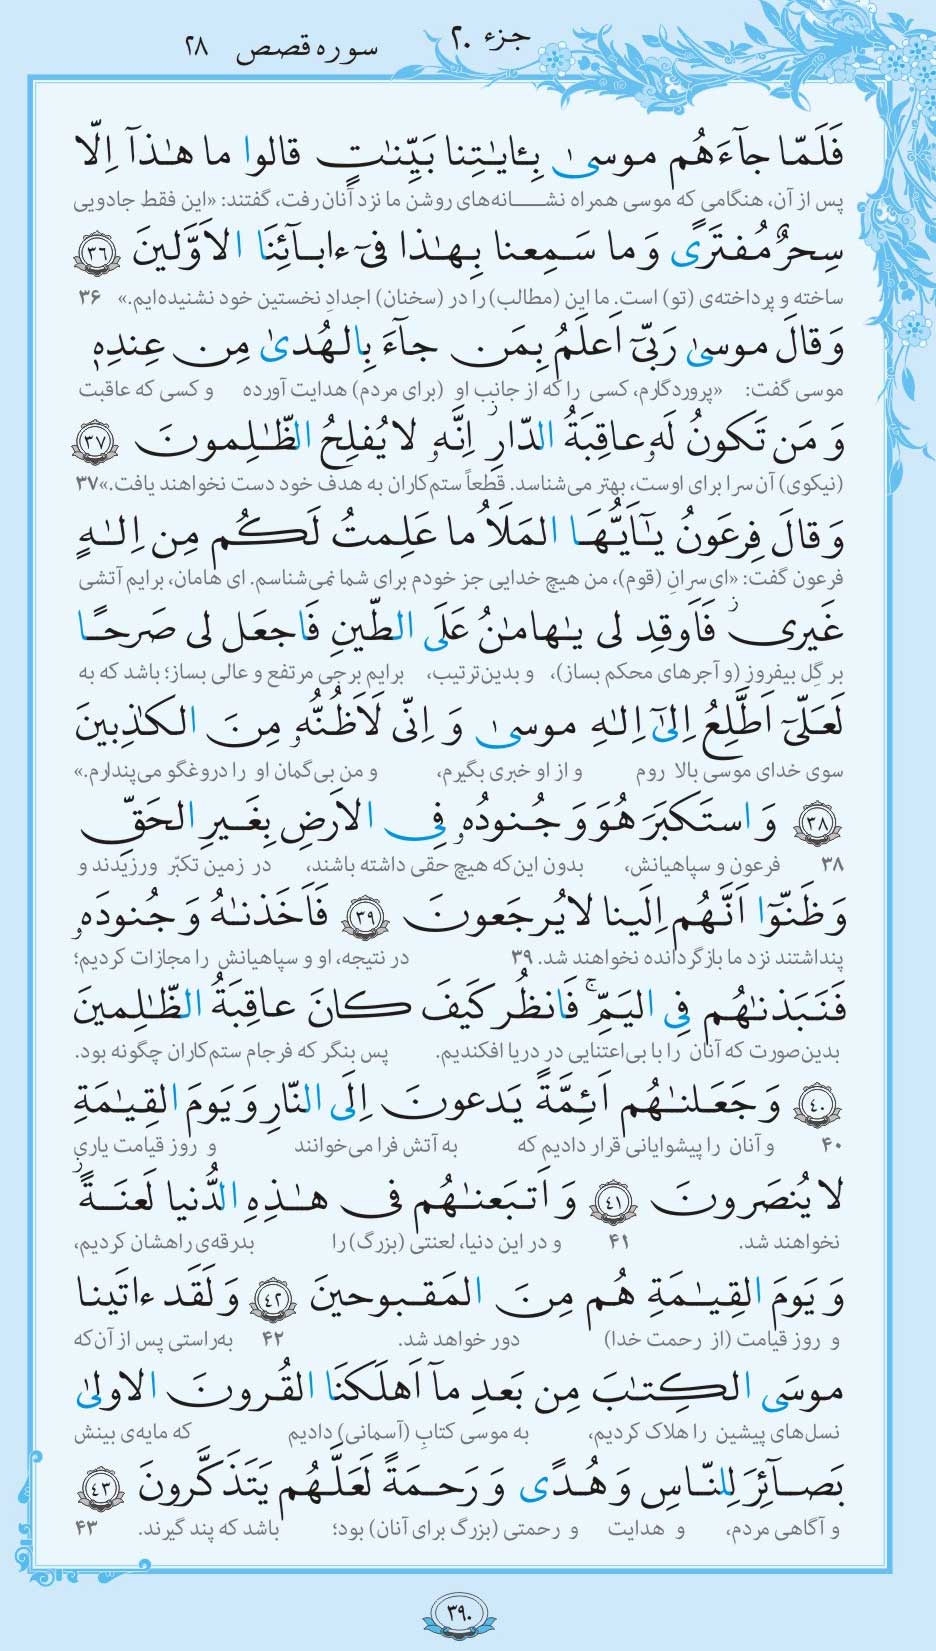 جزء ۲۰
سوره قصص ۲۸
فَلَمّا جآءَهُم موسىٰ بِـٔايـٰتِنا بَيِّنـٰتٍ قالوا ما هـٰذآ اِلّا
پس از آن، هنگامی که موسی همراه نشانه‌های روشن ما نزد آنان رفت، گفتند: «این فقط جادویی
سِحرٌ مُفتَرًى وَ ما سَمِعنا بِهـٰذا فىٓ ءابآئِنَا الاَوَّلينَ ﴿٣٦﴾
ساخته و پرداخته‌ی (تو) است. ما این (مطالب) را در (سخنان) اجدادِ نخستین خود نشنیده‌ایم.» ۳۶
وَ قالَ موسىٰ رَبّىٓ اَعلَمُ بِمَن جآءَ بِالهُدىٰ مِن عِندِهٖ
موسی گفت: «پروردگارم، کسی را که از جانب او (برای مردم) هدایت آورده و کسی که عاقبت
وَ مَن تَكونُ لَهٗ عاقِبَةُ الدّارِ ۖ اِنَّهٗ لا يُفلِحُ الظّـٰلِمونَ ﴿٣٧﴾
(نیکوی) آن سرا برای اوست، بهتر می‌شناسد. قطعاً ستم‌کاران به هدف خود دست نخواهند یافت.» ۳۷
وَ قالَ فِرعَونُ يـٰٓاَيُّهَا المَلَاُ ما عَلِمتُ لَكُم مِن اِلـٰهٍ
فرعون گفت: «ای سرانِ (قوم)، من هیچ خدایی جز خودم برای شما نمی‌شناسم. ای هامان، برایم آتشی
غَيرى ز فَاَوقِد لى يـٰهامـٰنُ عَلَى الطّينِ فَاجعَل لى صَرحًا
بر گِل بیفروز (و آجرهای محکم بساز)، و بدین‌ترتیب، برایم برجی مرتفع و عالی بساز؛ باشد که به
لَعَلّىٓ اَطَّلِعُ اِلىٰٓ اِلـٰهِ موسىٰ وَ اِنّى لَاَظُنُّهٗ مِنَ الكـٰذِبينَ
سوی خدای موسی بالا روم و از او خبری بگیرم، و من بی‌گمان او را دروغگو می‌پندارم.»
﴿٣٨﴾ وَ استَكبَرَ هُوَ وَ جُنودُهٗ فِى الاَرضِ بِغَيرِ الحَقِّ
۳۸ فرعون و سپاهیانش، بدون این‌که هیچ حقی داشته باشند، در زمین تکبّر ورزیدند و
وَ ظَنّوٓا اَنَّهُم اِلَينا لا يُرجَعونَ ﴿٣٩﴾ فَاَخَذنـٰهُ وَ جُنودَهٗ
پنداشتند نزد ما بازگردانده نخواهند شد. ۳۹ در نتیجه، او و سپاهیانش را مجازات کردیم؛
فَنَبَذنـٰهُم فِى اليَمِّ ۚ فَانظُر كَيفَ كانَ عاقِبَةُ الظّـٰلِمينَ
بدین‌صورت که آنان را با بی‌اعتنایی در دریا افکندیم. پس بنگر که فرجام ستم‌کاران چگونه بود.
﴿٤٠﴾ وَ جَعَلنـٰهُم اَئِمَّةً يَدعونَ اِلَى النّارِ وَ يَومَ القِيـٰمَةِ
۴۰ و آنان را پیشوایانی قرار دادیم که به آتش فرا می‌خوانند و روز قیامت یاری
لا يُنصَرونَ ﴿٤١﴾ وَ اَتبَعنـٰهُم فى هـٰذِهِ الدُّنيا لَعنَةً ز
نخواهند شد. ۴۱ و در این دنیا، لعنتی (بزرگ) را بدرقه‌ی راهشان کردیم،
وَ يَومَ القِيـٰمَةِ هُم مِنَ المَقبوحينَ ﴿٤٢﴾ وَ لَقَد ءاتَينا
و روز قیامت (از رحمت خدا) دور خواهد شد. ۴۲ به‌راستی پس از آن‌که
موسَى الكِتـٰبَ مِن بَعدِ مآ اَهلَكنَا القُرونَ الاولىٰ
نسل‌های پیشین را هلاک کردیم، به موسی کتابِ (آسمانی) دادیم که مایه‌ی بینش
بَصآئِرَ لِلنّاسِ وَ هُدًى وَ رَحمَةً لَعَلَّهُم يَتَذَكَّرونَ ﴿٤٣﴾
و آگاهی مردم، و هدایت و رحمتی (بزرگ برای آنان) بود؛ باشد که پند گیرند. ۴۳
۳۹۰